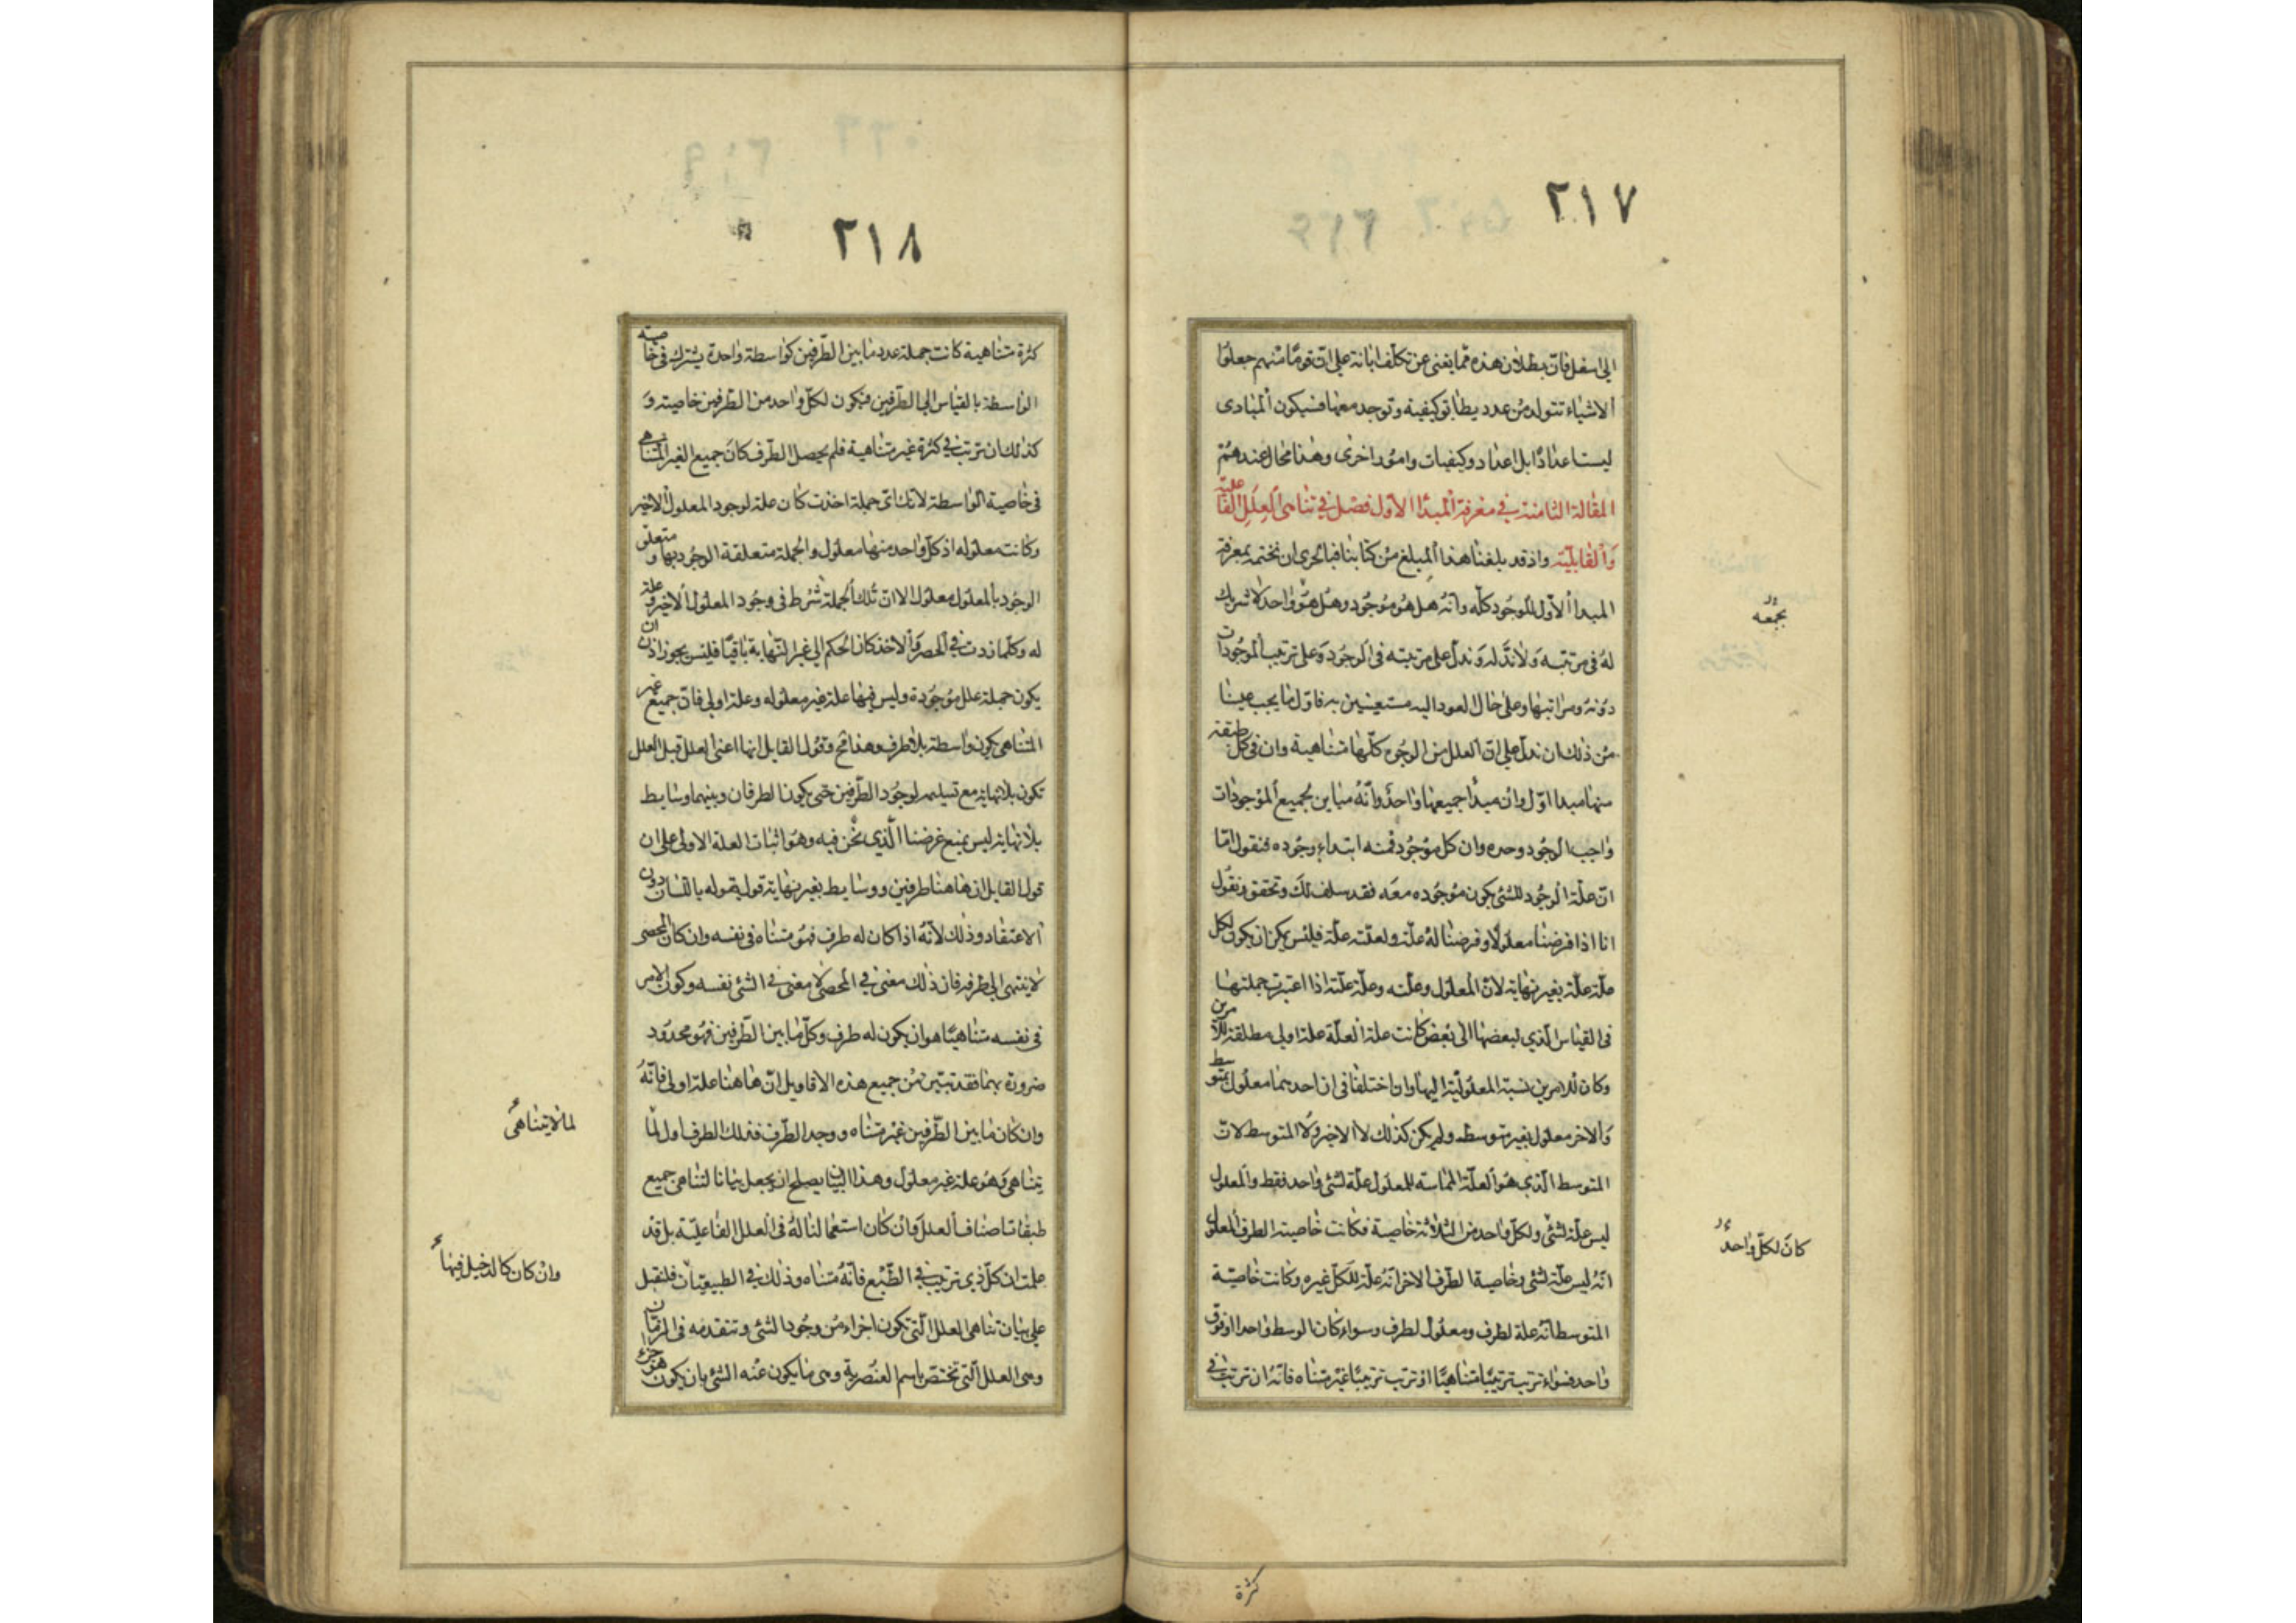 ٢١٧
الى اسفل فان بطلان هذه مما يغنى عن تكلف ابانة على ان قوما منهم جعلوا
الاشياء تتولد من عدد يطابق كيفية وتوجد معها فيكون المبادى
ليست اعدادا بل اعداد وكيفيات وامور اخرى وهذا محال عندهم
المقالة الثامنة في معرفة المبدا الاول فصل في تناهى العلل الفاعلية
والقابلية واذ قد بلغنا هذا المبلغ من كتابنا فبالحرى ان نختمه بمعرفة
المبدا الاول للوجود كله وانه هل هو موجود وهل هو واحد لا شريك
له في مرتبته ولا ند له وندل على مرتبته في الوجود وعلى ترتيب الموجودات
دونه ومراتبها وعلى حال العود اليه مستعينين به فاول ما يجب علينا
من ذلك ان ندل على ان العلل من الوجوه كلها متناهية وان في كل طبقة
منها مبدا اول وان مبدا جميعها واحد وانه مباين لجميع الموجودات
واجب الوجود وحده وان كل موجود فمنه ابتداء وجوده فنقول اما
ان علة الوجود للشئ يكون موجوده معه فقد سلف لك وتحقق ونقول
انا اذا فرضنا معلولا وفرضنا له علة ولعلته علة فليس يمكن ان يكون لكل
علة علة بغير نهاية لان المعلول وعلته وعلة علته اذا اعتبرت جملتها
في القياس الذي لبعضها الى بعض كانت علة العلة علة اولى مطلقة للامرين
وكان للامرين نسبة المعلولية اليها وان اختلفا في ان احدهما معلول بمتوسط
والاخر معلول بغير متوسط ولم يكن كذلك لا الاخير ولا المتوسط لان
المتوسط الذي هو العلة المماسة للمعلول علة لشئ واحد فقط والمعلول
ليس علة لشئ ولكل واحد من الثلاثة خاصية فكانت خاصية الطرف المعلول
انه ليس علة لشئ وخاصية الطرف الاخر انه علة للكل غيره وكانت خاصية
المتوسط انه علة لطرف ومعلول لطرف وسواء كان الوسط واحدا او فوق
واحد فسواء ترتب ترتيبا متناهيا او ترتب ترتيبا غير متناه فانه ان ترتب في
كان لكل واحد
كثرة
٢١٨
كثرة متناهية كانت جملة عدد ما بين الطرفين كواسطة واحدة يشترك في خاصية
الواسطة بالقياس الى الطرفين فيكون لكل واحد من الطرفين خاصيته و
كذلك ان ترتب في كثرة غير متناهية فلم يحصل الطرف كان جميع الغير المتناهى
في خاصية الواسطة لانك اى جملة اخذت كان علة لوجود المعلول الاخير
وكانت معلوله اذ كل واحد منها معلول والجملة متعلقة الوجود بها ومتعلق
الوجود بالمعلول معلول الا ان تلك الجملة شرط في وجود المعلول الاخير وعلة
له وكلما زدت في الحصر والاخذ كان الحكم الى غير النهاية باقيا فليس يجوز اذن ان
يكون جملة علل موجودة وليس فيها علة غير معلوله وعلة اولى فان جميع غير
المتناهى يكون واسطة بلا طرف وهذا مح وقول القايل انها اعنى العلل قبل العلل
تكون بلا نهاية مع تسليمه لوجود الطرفين حتى يكون الطرفان وبينهما وسايط
بلا نهاية ليس يمنع غرضنا الذي نحن فيه وهو اثبات العلة الاولى على ان
قول القايل ان هاهنا طرفين ووسايط بغير نهاية قول يقوله باللسان دون
الاعتقاد وذلك لانه اذا كان له طرف فهو متناه في نفسه وان كان المحصى
لا ينتهى الى طرفه فان ذلك معنى في المحصى لا معنى في الشئ نفسه وكون الامر
في نفسه متناهيا هو ان يكون له طرف وكل ما بين الطرفين فهو محدود
ضرورة بهما فقد تبين من جميع هذه الاقاويل ان هاهنا علة اولى فانه
وان كان ما بين الطرفين غير متناه ووجد الطرف فذلك الطرف اول لما
يتناهى وهو علة غير معلول وهذا البيان يصلح ان يجعل بيانا لتناهى جميع
طبقات اصناف العلل وان كان استعمالنا له في العلل الفاعلية بل قد
علمت ان كل ذي ترتيب في الطبع فانه متناه وذلك في الطبيعيات فلنقبل
على بيان تناهى العلل التي تكون اجزاء من وجود الشئ وتتقدمه في الزمان
وهى العلل التي تختص باسم العنصرية وهى ما يكون عنه الشئ بان يكون هو جزء
لما لا يتناهى
وان كان كالدخيل فيها